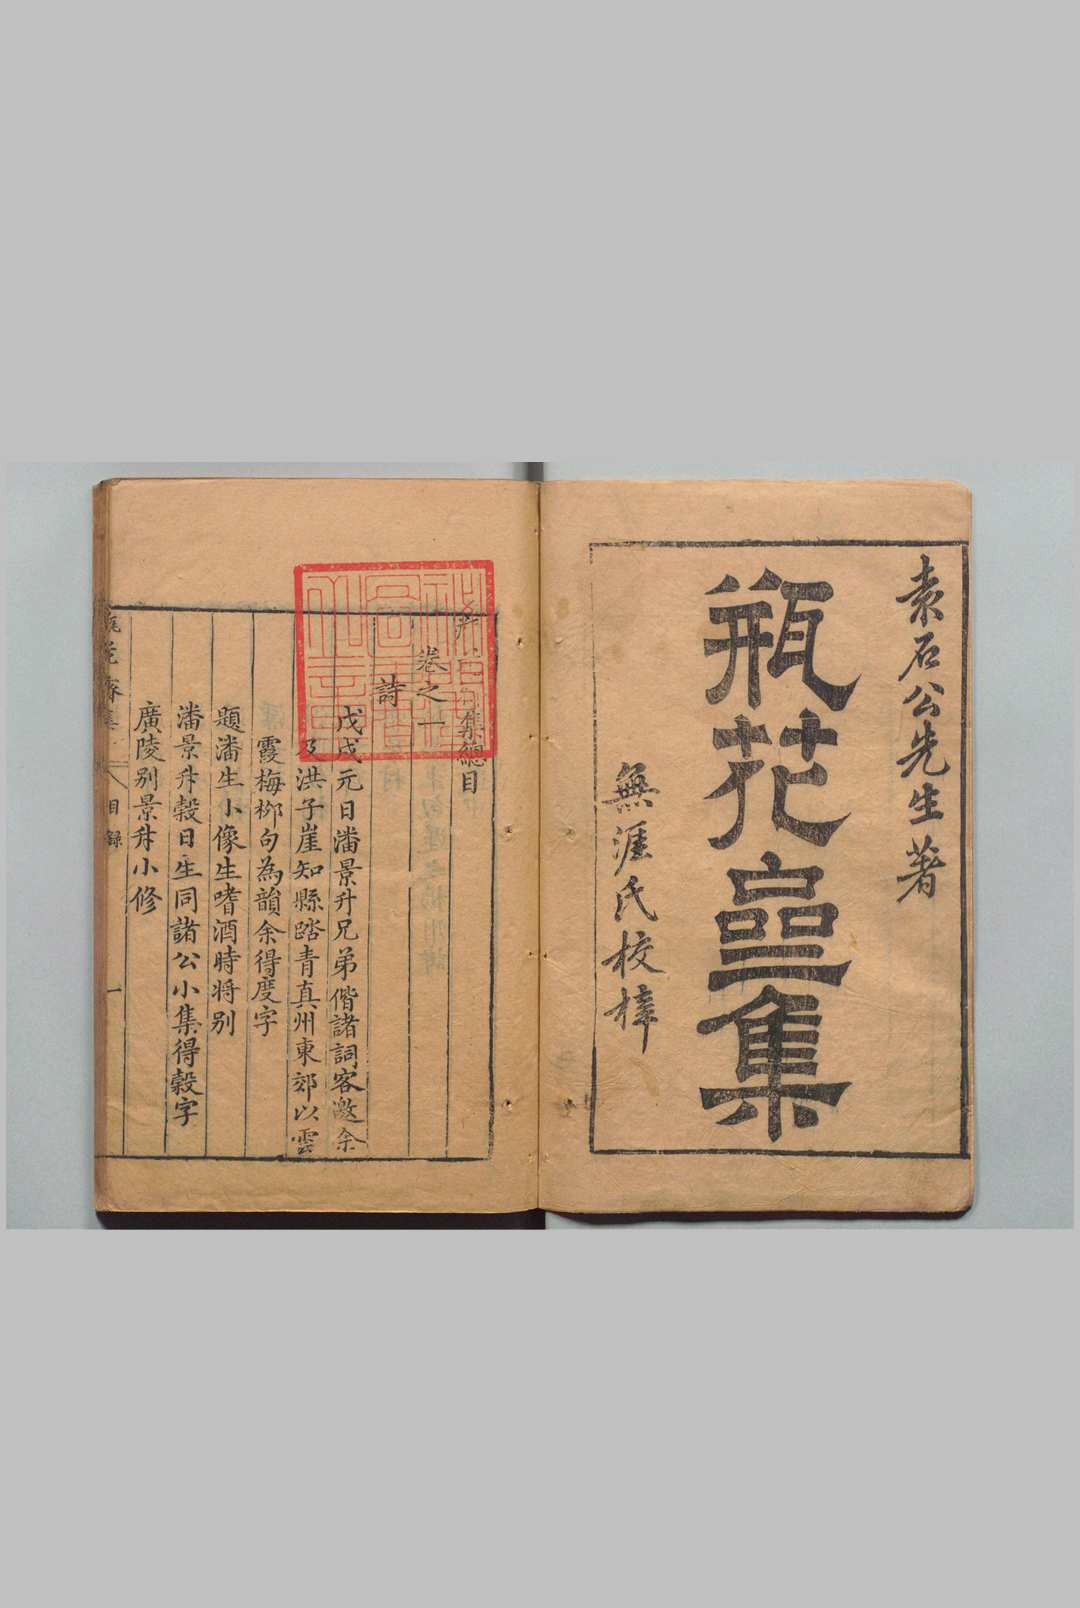 袁石公先生著
瓶花齋集
無涯氏校梓
集總目
卷之一
詩
戊戌元日潘景升兄弟偕諸詞客邀余
及洪子崖知縣踏青真州東郊以雲
霞梅栁句為韻余得度字
題潘生小像生嗜酒時将别
潘景升穀日生同諸公小集得穀字
廣陵别景升小修
目録
一